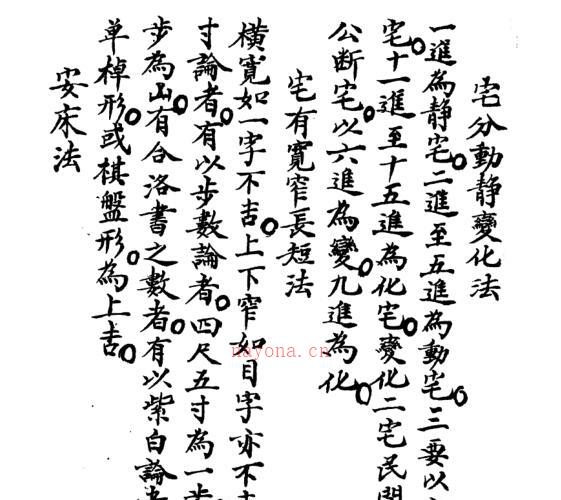 宅分動靜變化法
一進為靜宅。二進至五進為動宅。三要以
宅。十一進至十五進為化宅。變化二宅民間
公断宅。以六進為變。九進為化。
宅有寬窄長短法
橫寬如一字不吉。上下窄如目字亦不吉
寸論者。有以步數論者。四尺五寸為一步
步為山。有合洛書之數者。有以紫白論
单棹形。或棋盤形為上吉。
安床法
nayona.cn